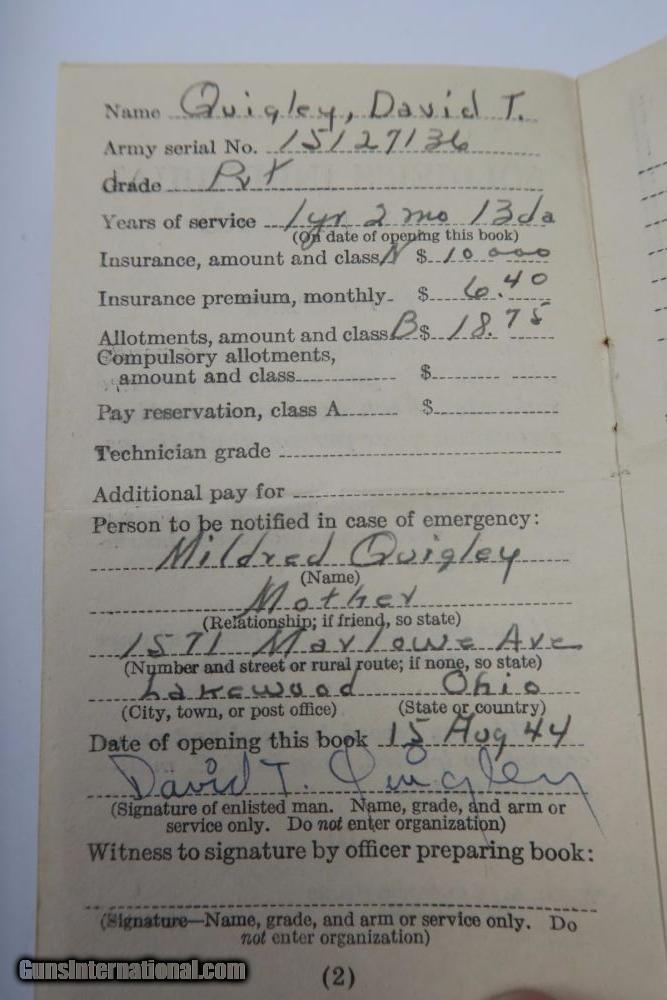 Name Quigley, David T.
Army serial No. 15127136
Grade Pvt
Years of service 1yr 2 mo 13da
(On date of opening this book)
Insurance, amount and class N $ 10 000
Insurance premium, monthly $ 6.40
Allotments, amount and class B $ 18.75
Compulsory allotments,
amount and class $
Pay reservation, class A $
Technician grade
Additional pay for
Person to be notified in case of emergency:
Mildred Quigley
(Name)
Mother
(Relationship; if friend, so state)
1571 Marlowe Ave
(Number and street or rural route; if none, so state)
Lakewood Ohio
(City, town, or post office) (State or country)
Date of opening this book 15 Aug 44
David T. Quigley
(Signature of enlisted man. Name, grade, and arm or
service only. Do not enter organization)
Witness to signature by officer preparing book:
(Signature—Name, grade, and arm or service only. Do
not enter organization)
GunsInternational.com
(2)